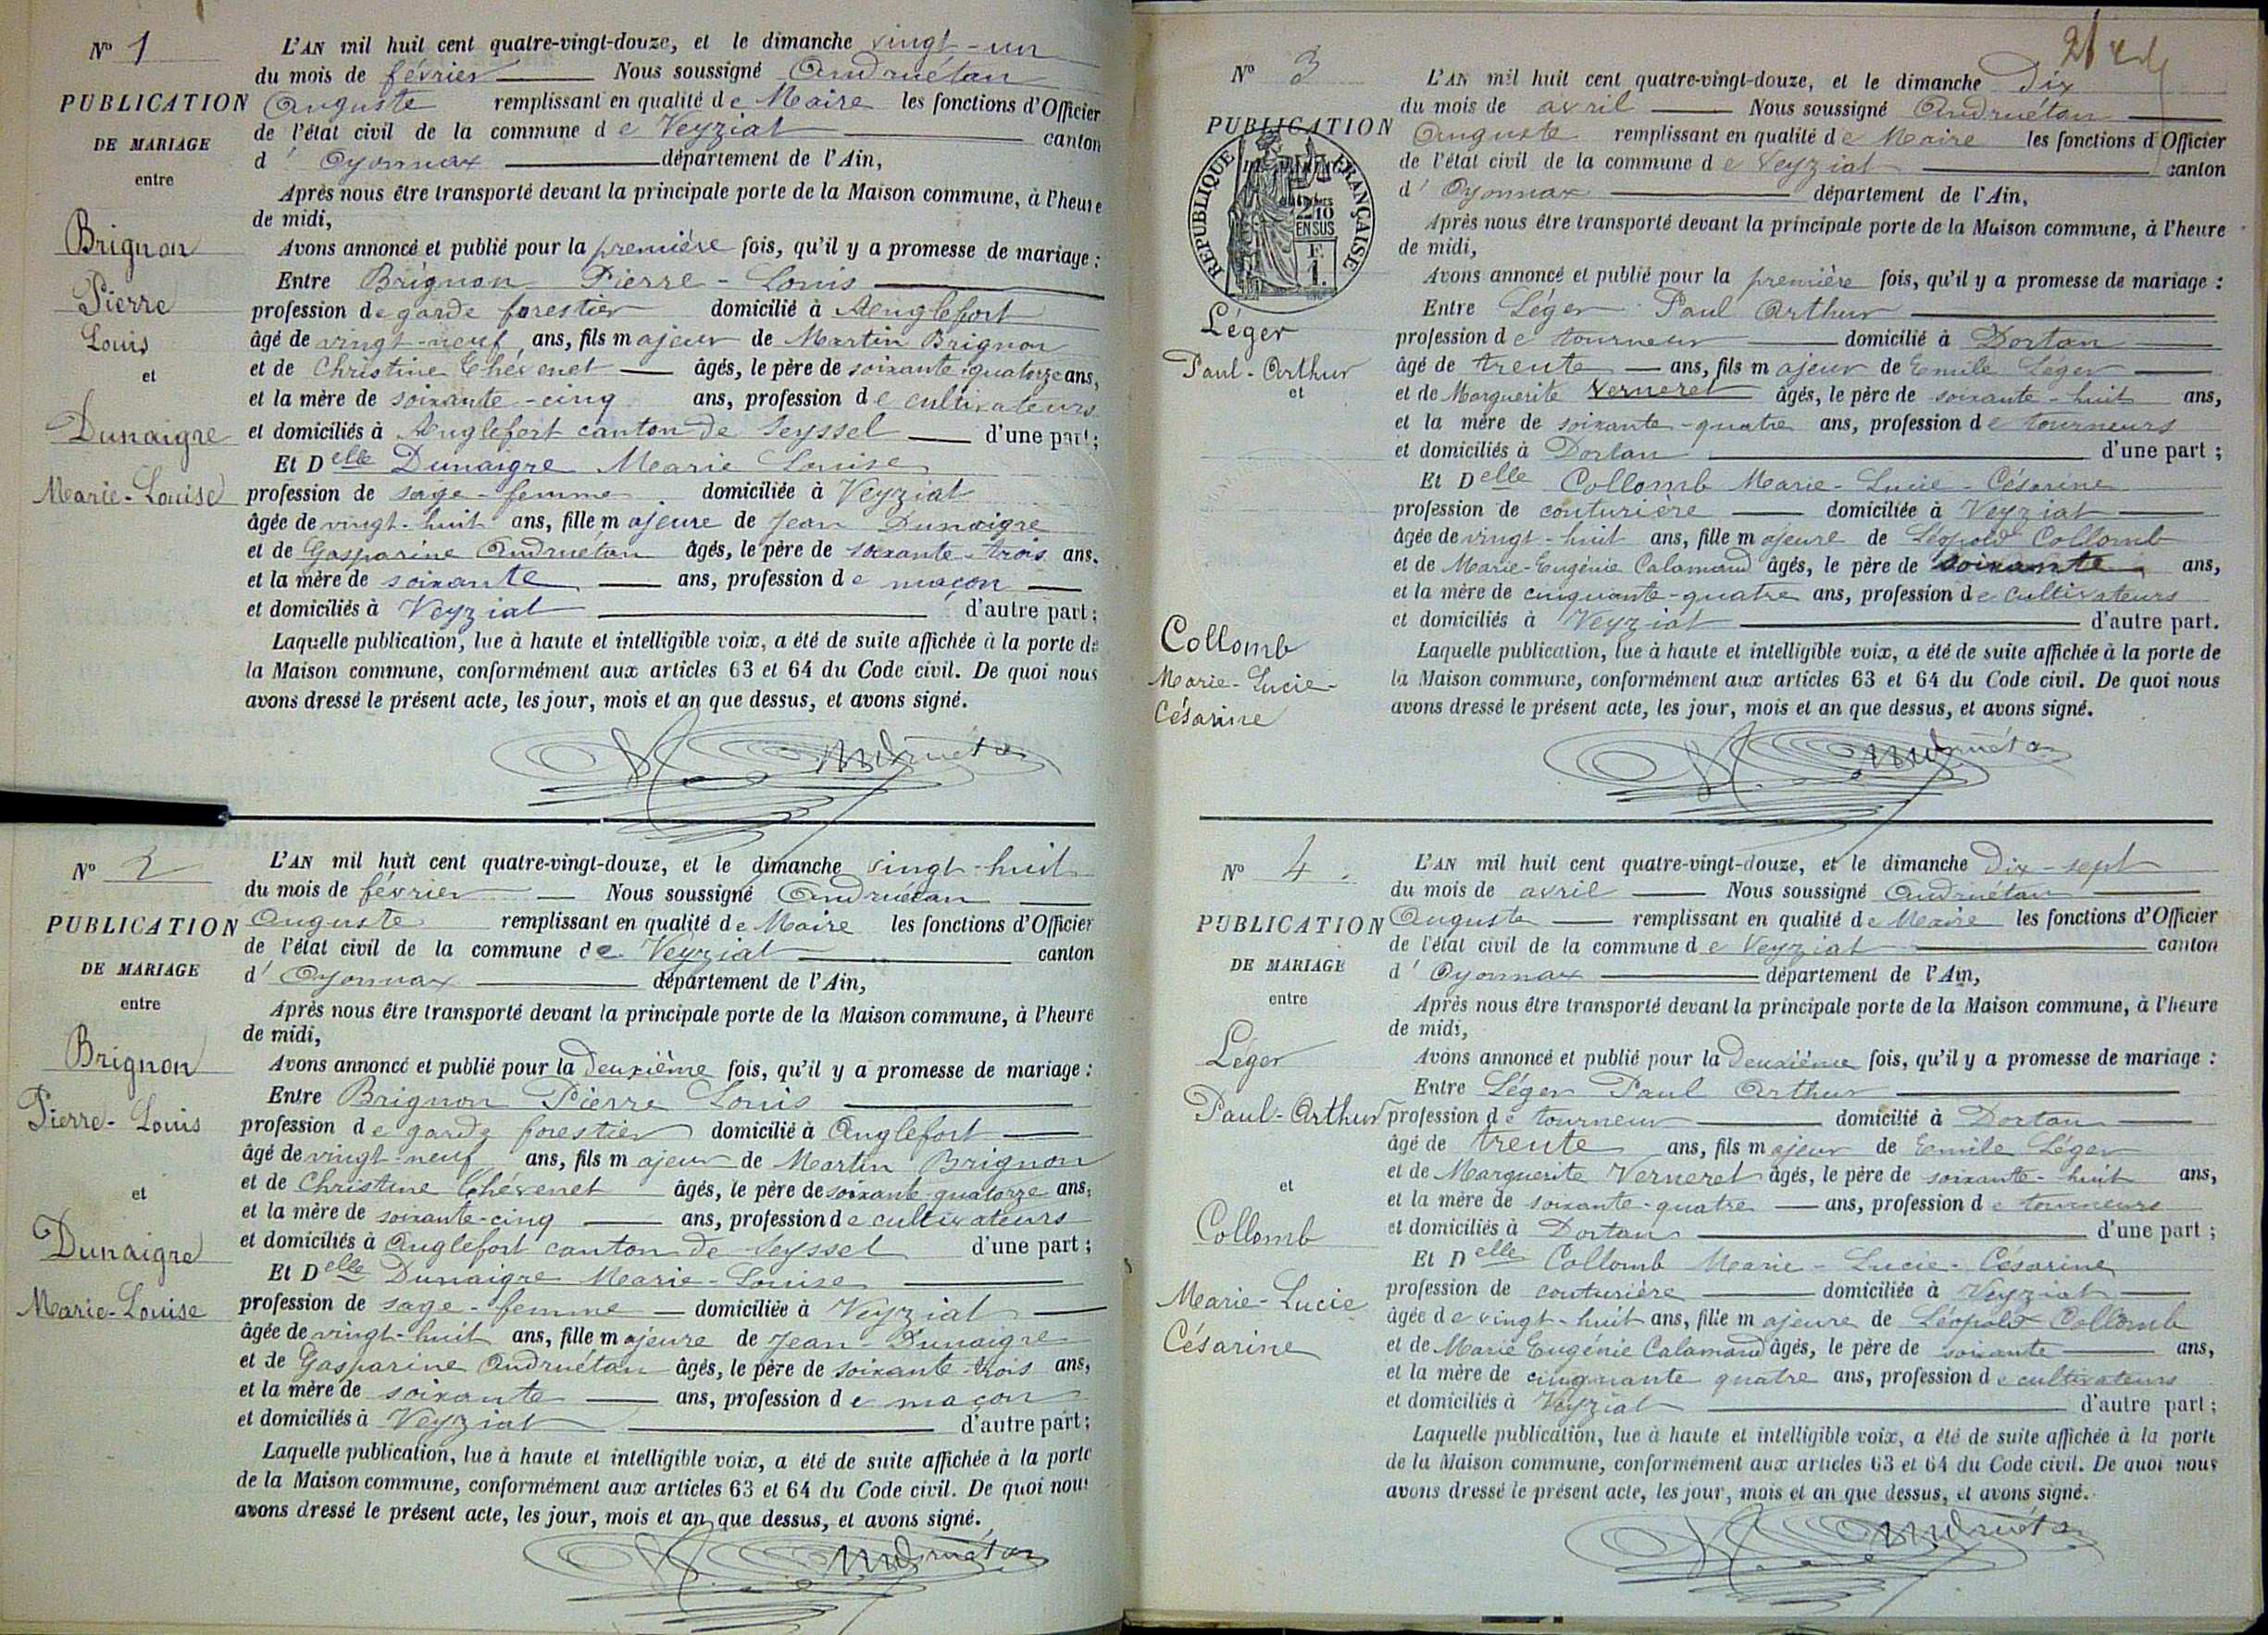 N° 1
PUBLICATION
DE MARIAGE
entre
Brignon
Pierre
Louis
et
Dunaigre
Marie-Louise
L'AN mil huit cent quatre-vingt-douze, et le dimanche vingt-un
du mois de février Nous soussigné Andruétan
Auguste remplissant en qualité de Maire les fonctions d'Officier
de l'état civil de la commune de Veyziat canton
d'Oyonnax département de l'Ain,
Après nous être transporté devant la principale porte de la Maison commune, à l'heure
de midi,
Avons annoncé et publié pour la première fois, qu'il y a promesse de mariage :
Entre Brignon Pierre-Louis
profession de garde forestier domicilié à Anglefort
âgé de vingt-neuf ans, fils majeur de Martin Brignon
et de Christine Chévenet âgés, le père de soixante-quatorze ans,
et la mère de soixante-cinq ans, profession de cultivateurs
et domiciliés à Anglefort canton de Seyssel d'une part ;
Et Delle Dunaigre Marie Louise
profession de sage-femme domiciliée à Veyziat
âgée de vingt-huit ans, fille majeure de Jean Dunaigre
et de Gasparine Andruétan âgés, le père de soixante-trois ans.
et la mère de soixante ans, profession de maçon
et domiciliés à Veyziat d'autre part ;
Laquelle publication, lue à haute et intelligible voix, a été de suite affichée à la porte de
la Maison commune, conformément aux articles 63 et 64 du Code civil. De quoi nous
avons dressé le présent acte, les jour, mois et an que dessus, et avons signé.
Andruétan
N° 2
PUBLICATION
DE MARIAGE
entre
Brignon
Pierre-Louis
et
Dunaigre
Marie-Louise
L'AN mil huit cent quatre-vingt-douze, et le dimanche vingt-huit
du mois de février Nous soussigné Andruétan
Auguste remplissant en qualité de Maire les fonctions d'Officier
de l'état civil de la commune de Veyziat canton
d'Oyonnax département de l'Ain,
Après nous être transporté devant la principale porte de la Maison commune, à l'heure
de midi,
Avons annoncé et publié pour la Deuxième fois, qu'il y a promesse de mariage :
Entre Brignon Pierre Louis
profession de garde forestier domicilié à Anglefort
âgé de vingt-neuf ans, fils majeur de Martin Brignon
et de Christine Chévenet âgés, le père de soixante-quatorze ans,
et la mère de soixante-cinq ans, profession de cultivateurs
et domiciliés à Anglefort canton de Seyssel d'une part ;
Et Delle Dunaigre Marie-Louise
profession de sage-femme domiciliée à Veyziat
âgée de vingt-huit ans, fille majeure de Jean-Dunaigre
et de Gasparine Andruétan âgés, le père de soixante-trois ans,
et la mère de soixante ans, profession de maçon
et domiciliés à Veyziat d'autre part ;
Laquelle publication, lue à haute et intelligible voix, a été de suite affichée à la porte
de la Maison commune, conformément aux articles 63 et 64 du Code civil. De quoi nous
avons dressé le présent acte, les jour, mois et an que dessus, et avons signé.
Andruétan
N° 3
PUBLICATION
REPUBLIQUE FRANÇAISE
2/10
EN SUS
F.
1.
Léger
Paul-Arthur
et
Collomb
Marie-Lucie-
Césarine
L'AN mil huit cent quatre-vingt-douze, et le dimanche Dix
du mois de avril Nous soussigné Andruétan
Auguste remplissant en qualité de Maire les fonctions d'Officier
de l'état civil de la commune de Veyziat canton
d'Oyonnax département de l'Ain,
Après nous être transporté devant la principale porte de la Maison commune, à l'heure
de midi,
Avons annoncé et publié pour la première fois, qu'il y a promesse de mariage :
Entre Léger Paul Arthur
profession de tourneur domicilié à Dortan
âgé de trente ans, fils majeur de Emile Léger
et de Marguerite Verneret âgés, le père de soixante-huit ans,
et la mère de soixante-quatre ans, profession de tourneurs
et domiciliés à Dortan d'une part ;
Et Delle Collomb Marie-Lucie-Césarine
profession de couturière domiciliée à Veyziat
âgée de vingt-huit ans, fille majeure de Léopold Collomb
et de Marie-Eugénie Calamand âgés, le père de soixante ans,
et la mère de cinquante-quatre ans, profession de cultivateurs
et domiciliés à Veyziat d'autre part.
Laquelle publication, lue à haute et intelligible voix, a été de suite affichée à la porte de
la Maison commune, conformément aux articles 63 et 64 du Code civil. De quoi nous
avons dressé le présent acte, les jour, mois et an que dessus, et avons signé.
Andruétan
N° 4.
PUBLICATION
DE MARIAGE
entre
Léger
Paul-Arthur
et
Collomb
Marie-Lucie
Césarine
L'AN mil huit cent quatre-vingt-douze, et le dimanche Dix-sept
du mois de avril Nous soussigné Andruétan
Auguste remplissant en qualité de Maire les fonctions d'Officier
de l'état civil de la commune de Veyziat canton
d'Oyonnax département de l'Ain,
Après nous être transporté devant la principale porte de la Maison commune, à l'heure
de midi,
Avons annoncé et publié pour la Deuxième fois, qu'il y a promesse de mariage :
Entre Léger Paul Arthur
profession de tourneur domicilié à Dortan
âgé de trente ans, fils majeur de Emile Léger
et de Marguerite Verneret âgés, le père de soixante-huit ans,
et la mère de soixante-quatre ans, profession de tourneurs
et domiciliés à Dortan d'une part ;
Et Delle Collomb Marie-Lucie-Césarine
profession de couturière domiciliée à Veyziat
âgée de vingt-huit ans, fille majeure de Léopold Collomb
et de Marie Eugénie Calamand âgés, le père de soixante ans,
et la mère de cinquante quatre ans, profession de cultivateurs
et domiciliés à Veyziat d'autre part ;
Laquelle publication, lue à haute et intelligible voix, a été de suite affichée à la porte
de la Maison commune, conformément aux articles 63 et 64 du Code civil. De quoi nous
avons dressé le présent acte, les jour, mois et an que dessus, et avons signé.
Andruétan